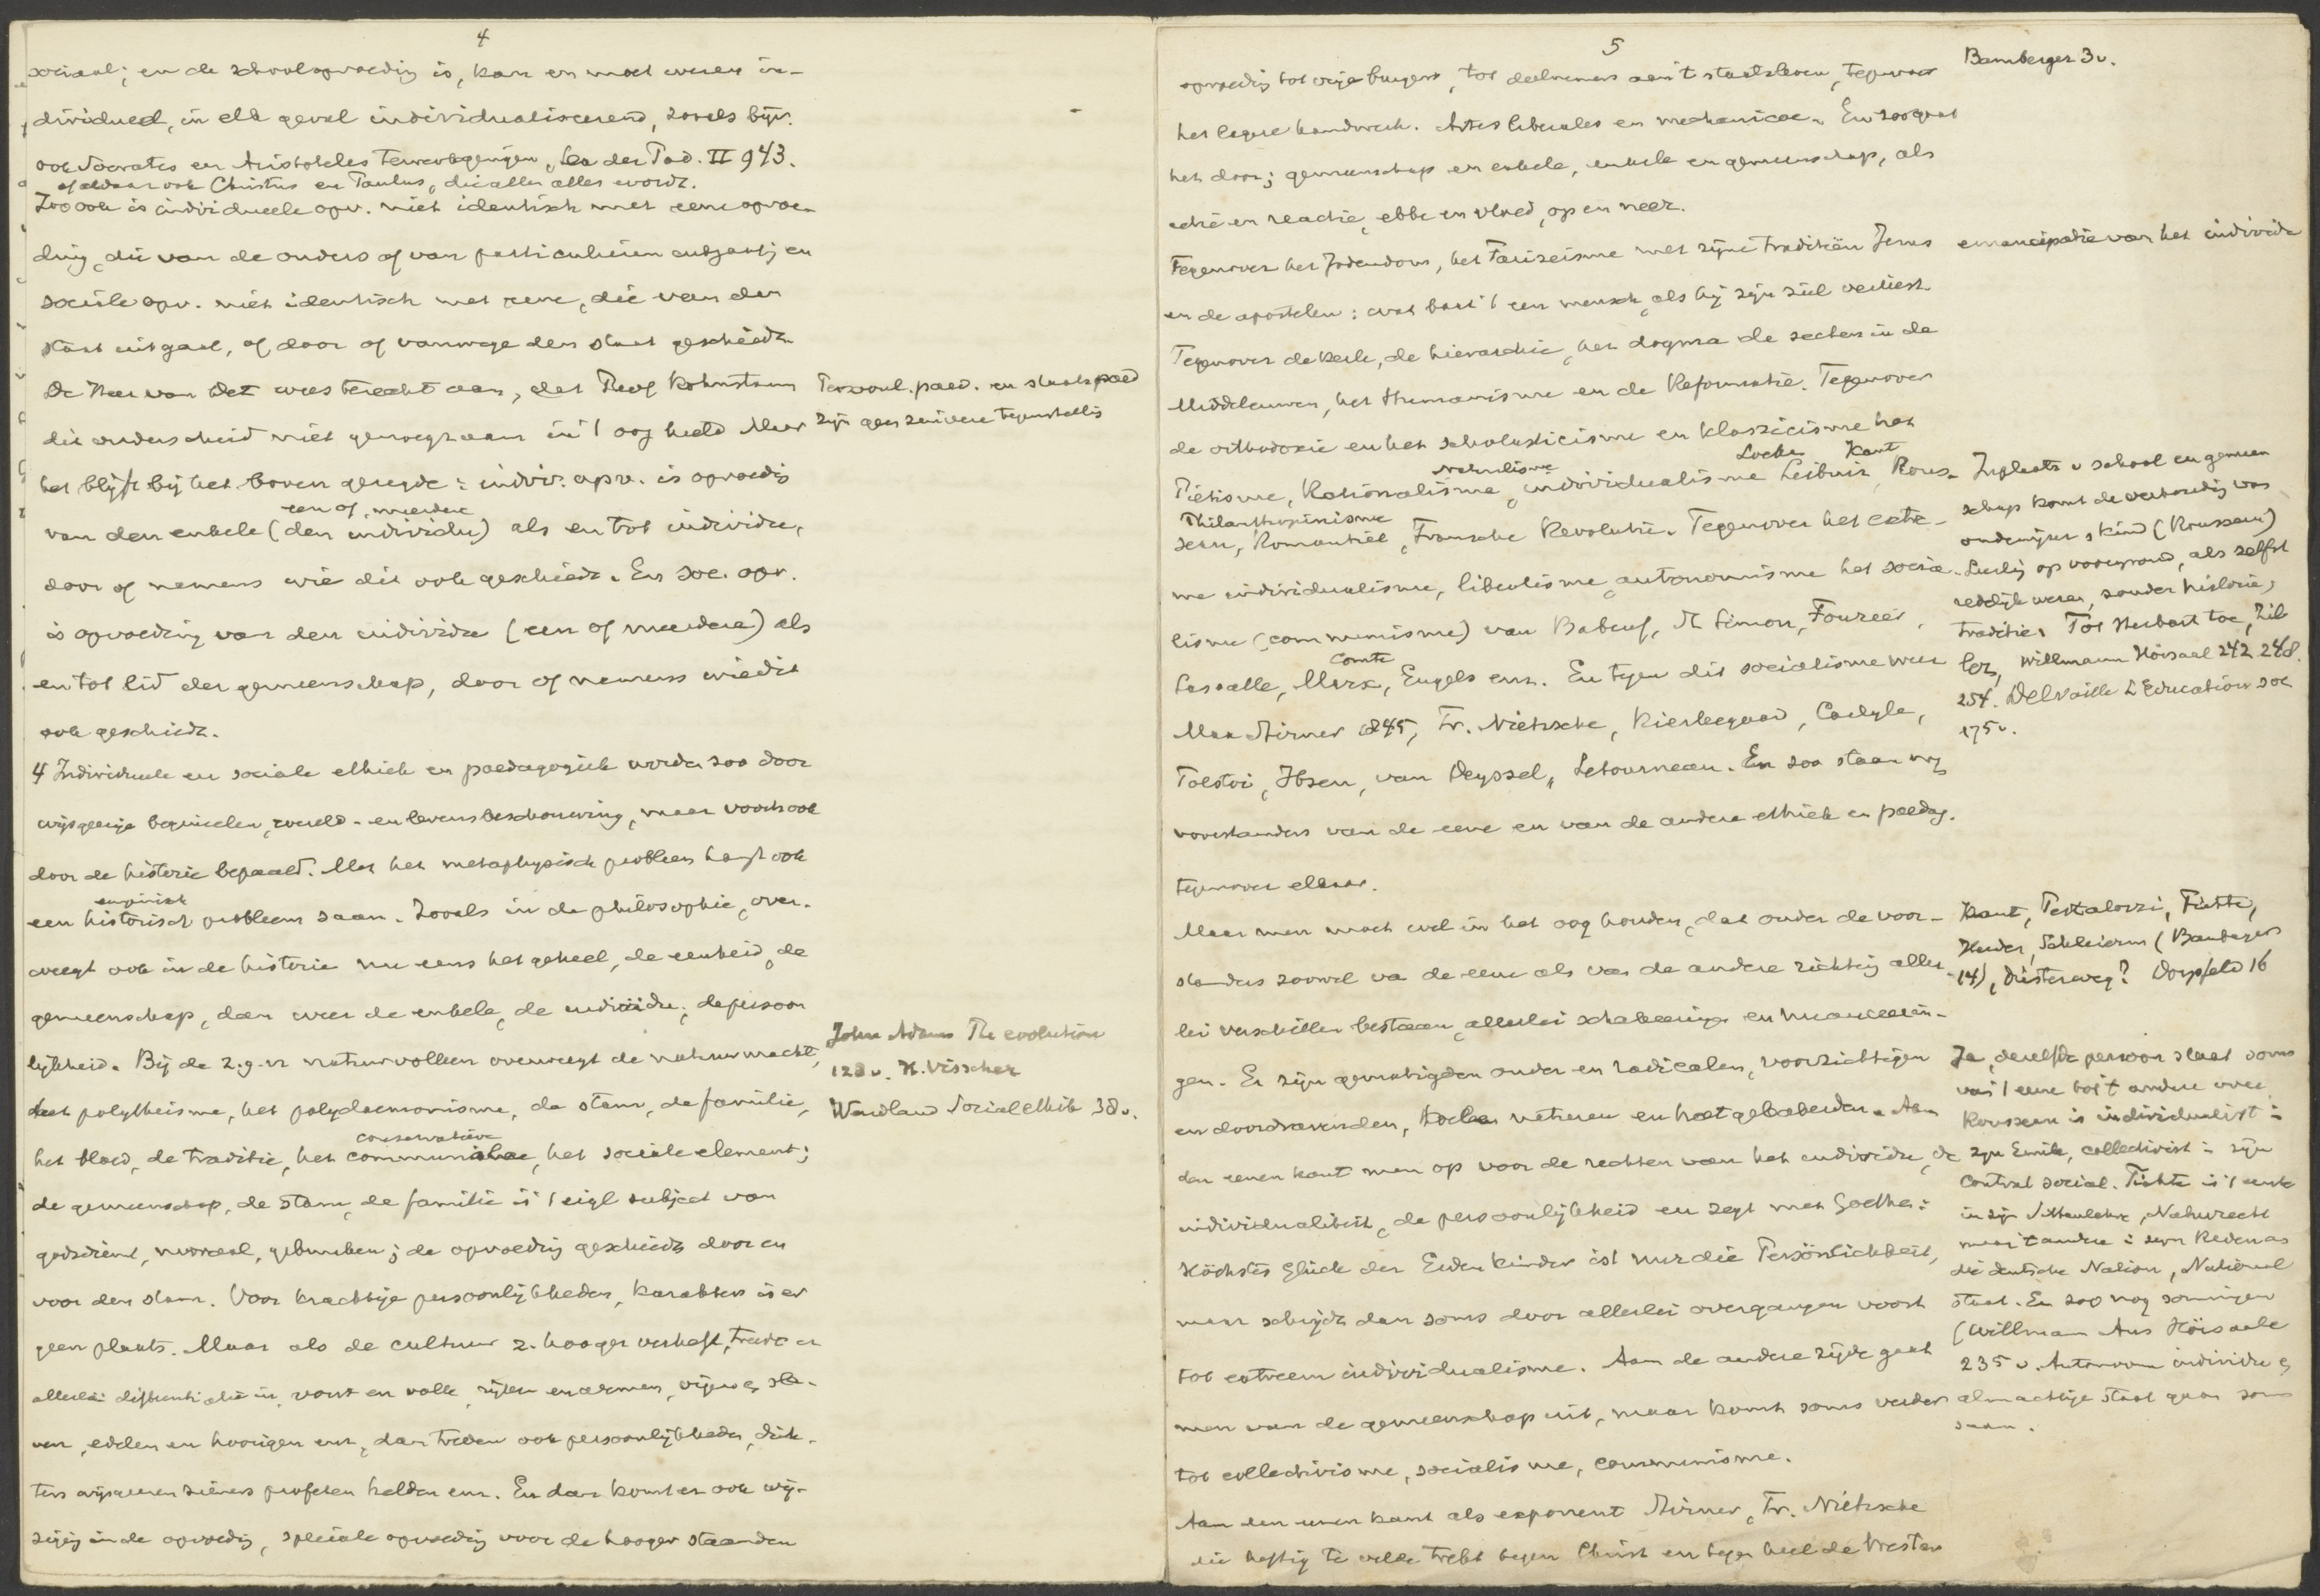 4
sociaal; en de schoolopvoeding is, kan en moet wezen in-
dividueel, in elk geval individualiseerend, zooals bijv.
ook Socrates en Aristoteles te werk gingen, Lex der Päd. II 943.
ook Christus en Paulus, die allen alles wordt.
Zoo ook is individueele opv. niet identisch met eene opvoe-
ding, die van de ouders of van particulieren uitgaat; en
sociale opv. niet identisch met eene, die van den
staat uitgaat, of door of vanwege den staat geschiedt.
De Heer van Wet wees terecht aan, dat Prof Kohnstamm
dit onderscheid niet genoegzaam in 't oog hield Maar
het blijft bij het boven gezegde: indiv. opv. is opvoeding
een of meerdere
van den enkele (den individu) als en tot individu,
door of namens wie dit ook geschiedt. En soc. opv.
is opvoeding van den individu (een of meerdere) als
en tot lid der gemeenschap, door of namens wie dit
ook geschiedt.
4 Individueele en sociale ethiek en paedagogiek worden zoo door
wijsgeerige beginselen, wereld- en levensbeschouwing, maar voorts ook
door de historie bepaald. Met het metaphysisch probleem hangt ook
empirisch
een historisch probleem saam. Zooals in de philosophie, over-
weegt ook in de historie nu eens het geheel, de eenheid, de
gemeenschap, dan weer de enkele, de individu, de persoon
lijkheid. Bij de z.g.n natuurvolken overweegt de natuurmacht,
het polytheisme, het polydaemonisme, de stam, de familie,
conservatieve
het bloed, de traditie, het communale, het sociale element;
de gemeenschap, de stam, de familie is 't eigl subject van
godsdienst, moraal, gebruiken; de opvoeding geschiedt door en
voor den stam. Voor krachtige persoonlijkheden, karakters is er
geen plaats. Maar als de cultuur z. hooger verheft, treedt er
allerlei differentiatie in, vorst en volk, rijken en armen, vrijen en sla-
ven, edelen en hoorigen enz, dan treden ook persoonlijkheden, dich-
ters wijsgeeren zieners profeten helden enz. En dan komt er ook wij-
ziging in de opvoeding, speciale opvoeding voor de hooger staanden
Persoonl. paed. en staatspaed
zijn geen zuivere tegenstelling
John Adams The evolution
128 v. H. Visscher
Wardland Social ethik 38 v.
5
opvoeding tot vrije burgers, tot deelnemers aan 't staatsleven, tegenover
het lagere handwerk. Artes liberales en mechanicae. En zoo gaat
het door; gemeenschap en enkele, enkele en gemeenschap, als
actie en reactie, ebbe en vloed, op en neer.
Tegenover het Jodendom, het Farizeisme met zijne traditiën Jezus
en de apostelen: wat baat 't een mensch, als hij zijn ziel verliest.
Tegenover de kerk, de hierarchie, het dogma de secten in de
Middeleeuwen, het Humanisme en de Reformatie. Tegenover
de orthodoxie en het scholasticisme en klassicisme het
naturalisme Locke Kant
Piëtisme, Rationalisme, individualisme Leibniz, Rous-
Philanthropinisme
seau, Romantiek, Fransche Revolutie. Tegenover het extre-
me individualisme, liberalisme, autonomisme het socia-
lisme (communisme) van Babeuf, St Simon, Fourier,
Comte
Lassalle, Marx, Engels enz. En tegen dit socialisme weer
Max Stirner 1845, Fr. Nietzsche, Kierkegaard, Carlyle,
Tolstoi, Ibsen, van Deyssel, Letourneau. En zoo staan nog
voorstanders van de eene en van de andere ethiek en paedag.
tegenover elkaar.
Maar men moet wel in het oog houden, dat onder de voor-
standers zoowel van de eene als van de andere richting aller-
lei verschillen bestaan, allerlei schakeeringen en nuanceerin-
gen. Er zijn gematigden onder en radicalen, voorzichtigen
en doordravenden, en Aan
den eenen kant men op voor de rechten van het individu, de
individualiteit, de persoonlijkheid en zegt met Goethe:
Höchstes Glück der Erdenkinder ist nur die Persönlichkeit,
maar schrijdt dan soms door allerlei overgangen voort
tot extreem individualisme. Aan de andere zijde gaat
men van de gemeenschap uit, maar komt soms verder
tot collectivisme, socialisme, communisme.
Aan den eenen kant als exponent Stirner, Fr. Nietzsche
die heftig te velde trekt tegen Christ en tegen heel de Westen
Bamberger 3 v.
emancipatie van het individu
In plaats v school en gemeen
schap komt de verhouding van
onderwijzer en kind (Rousseau)
Leerling op voorgrond, als zelfst
redelijk wezen, zonder historie,
traditie. Tot Herbart toe, Zil
ler, Willmann Hörsaal 242 248.
254. Delvaille L'Education soc
175 v.
Kant, Pestalozzi, Fichte,
Herder, Schleierm (Bamberger
14), Diesterweg? Dörpfeld 16
Ja, dezelfde persoon slaat soms
van 't eene tot 't andere over
Rousseau is individualist in
zijn Emile, collectivist in zijn
Contrat social. Fichte is 't eerste
in zijn Sittenlehre, Naturrecht
maar 't andere in zijn Reden an
die deutsche Nation, National
staat. En zoo nog sommigen
(Willmann Aus Hörsaale
235 v. Autonoom individu en
almachtige staat gaan soms
saam.